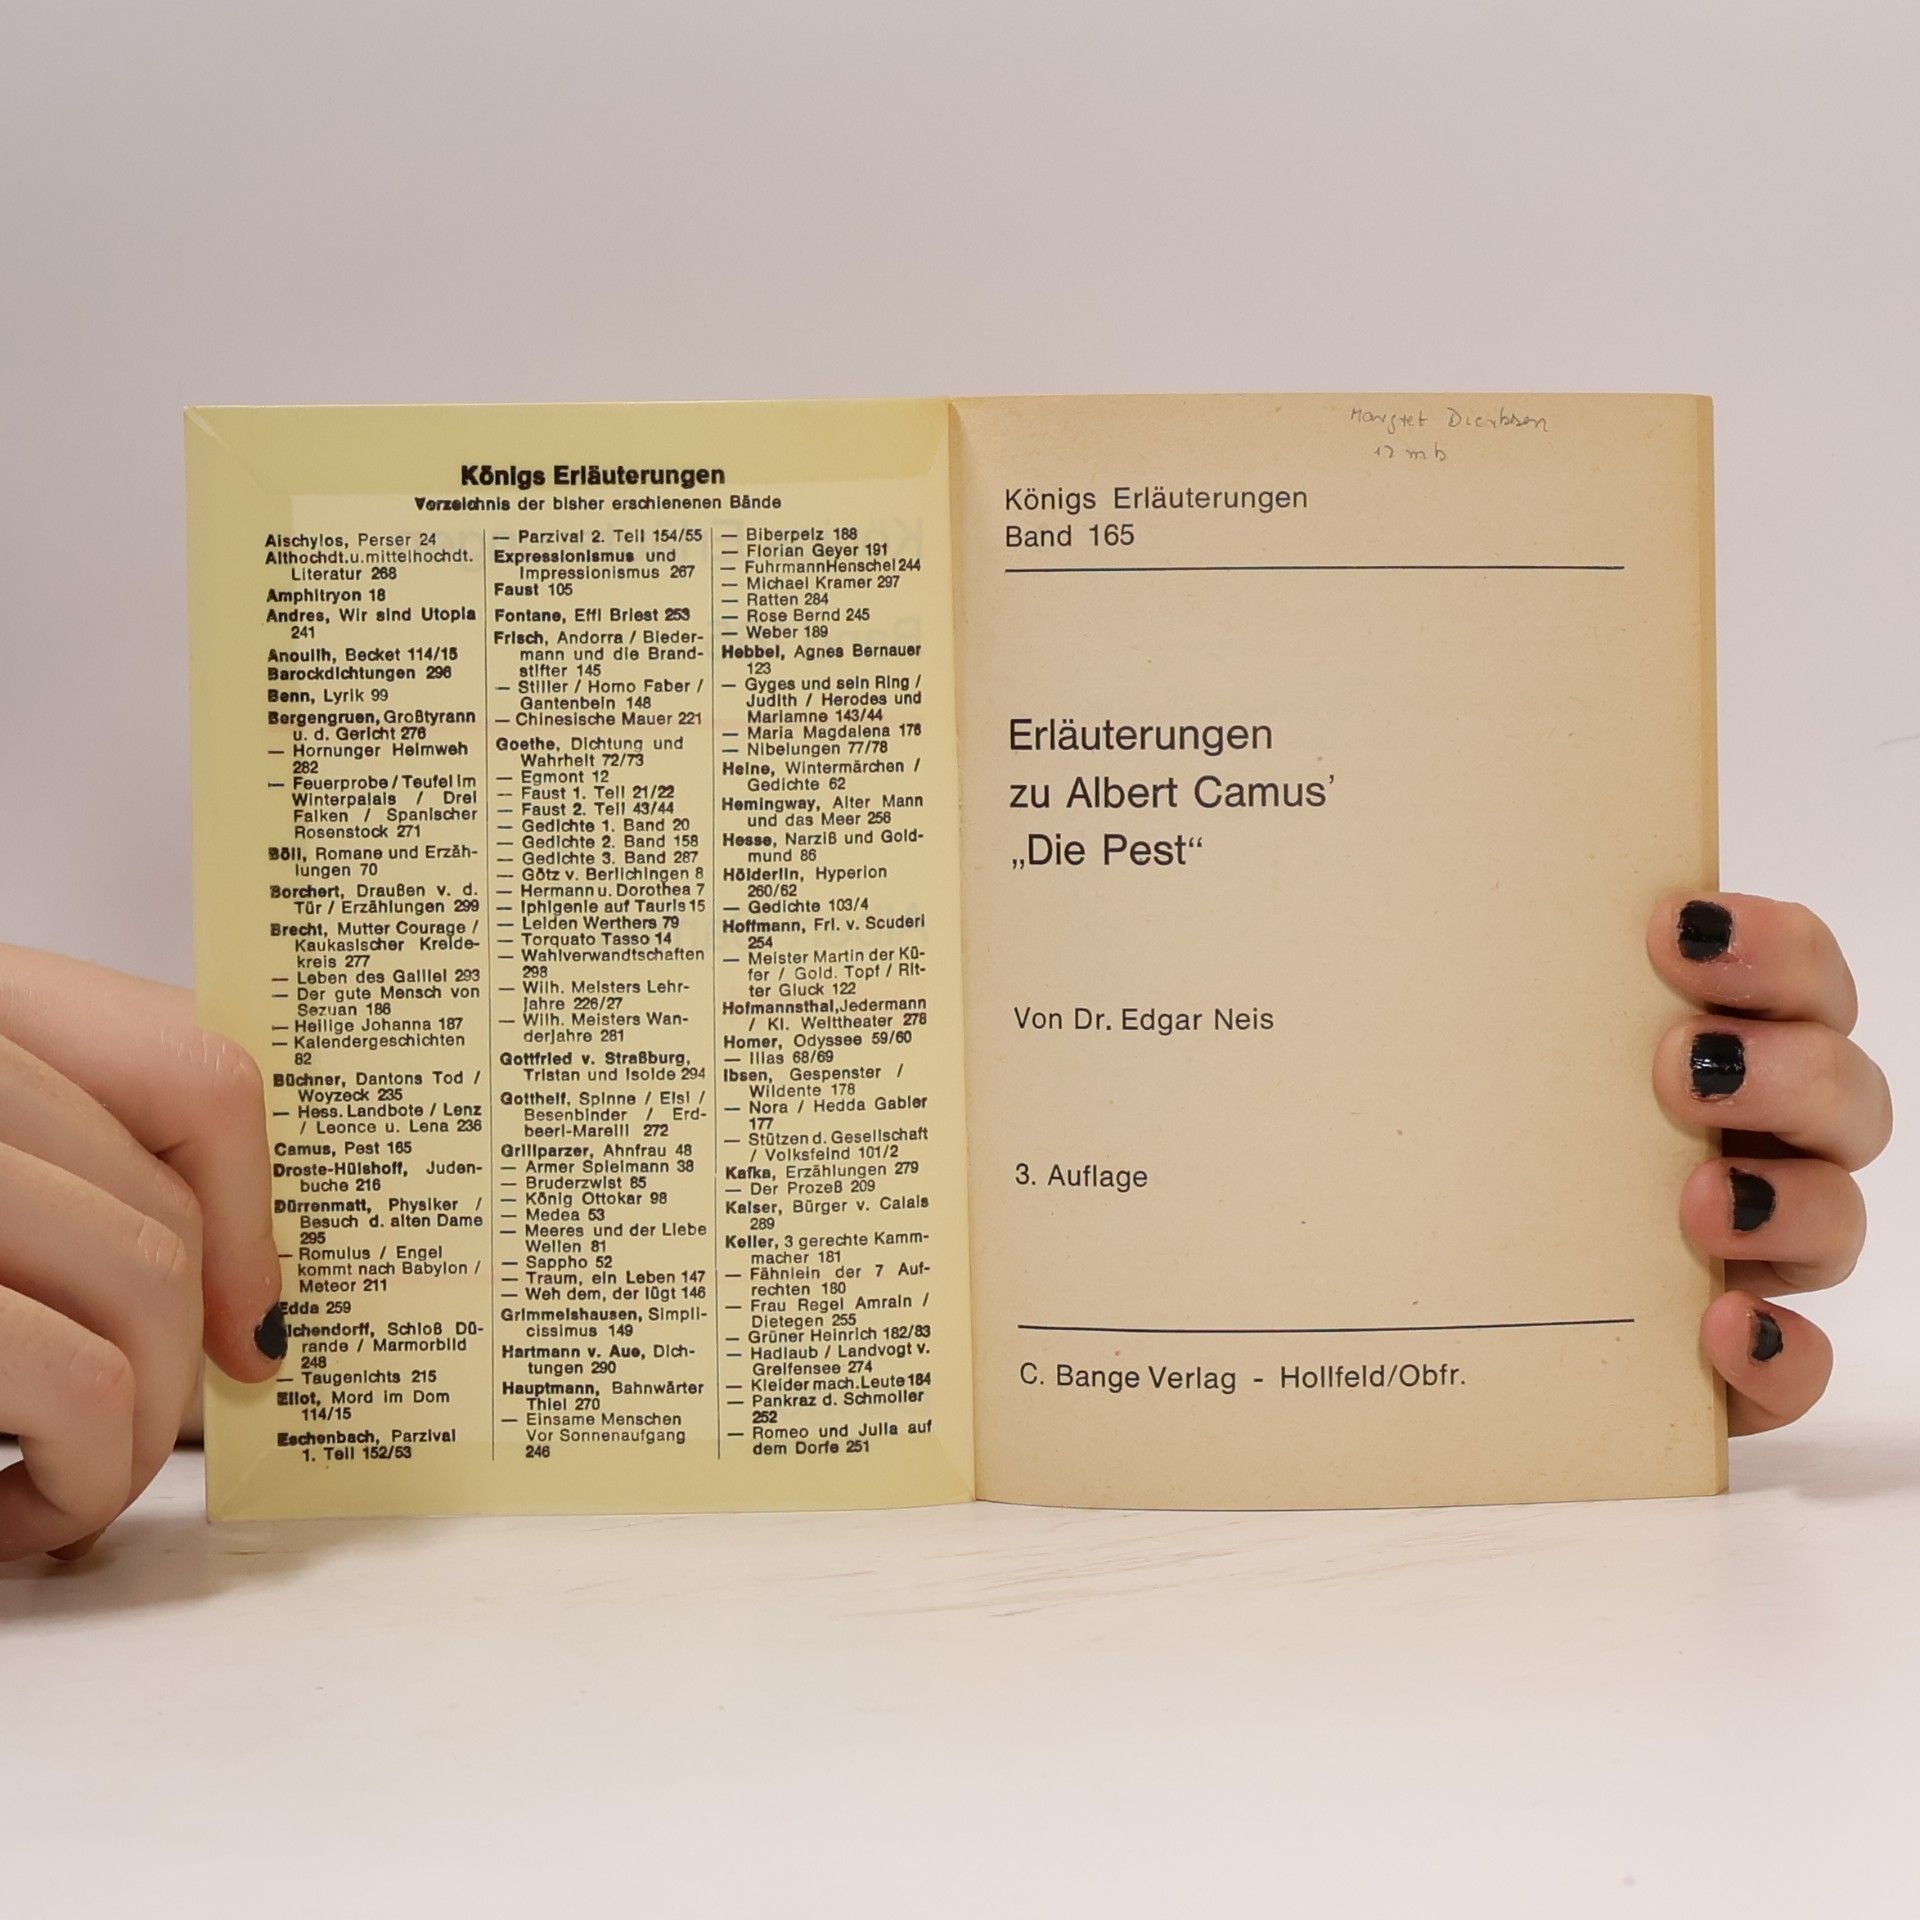 Königs Erläuterungen
Verzeichnis der bisher erschienenen Bände
Aischylos, Perser 24
Althochdt.u.mittelhochdt.
Literatur 268
Amphitryon 18
Andres, Wir sind Utopia
241
Anouilh, Becket 114/15
Barockdichtungen 296
Benn, Lyrik 99
Bergengruen, Großtyrann
u. d. Gericht 276
— Hornunger Heimweh
282
— Feuerprobe / Teufel im
Winterpalais / Drei
Falken / Spanischer
Rosenstock 271
Böll, Romane und Erzäh-
lungen 70
Borchert, Draußen v. d.
Tür / Erzählungen 299
Brecht, Mutter Courage /
Kaukasischer Kreide-
kreis 277
— Leben des Galilei 293
— Der gute Mensch von
Sezuan 186
— Heilige Johanna 187
— Kalendergeschichten
82
Büchner, Dantons Tod /
Woyzeck 235
— Hess. Landbote / Lenz
/ Leonce u. Lena 236
Camus, Pest 165
Droste-Hülshoff, Juden-
buche 216
Dürrenmatt, Physiker /
Besuch d. alten Dame
295
— Romulus / Engel
kommt nach Babylon /
Meteor 211
Edda 259
ichendorff, Schloß Dü-
rande / Marmorbild
248
— Taugenichts 215
Eliot, Mord im Dom
114/15
Eschenbach, Parzival
1. Teil 152/53
— Parzival 2. Teil 154/55
Expressionismus und
Impressionismus 267
Faust 105
Fontane, Effi Briest 253
Frisch, Andorra / Bieder-
mann und die Brand-
stifter 145
— Stiller / Homo Faber /
Gantenbein 148
— Chinesische Mauer 221
Goethe, Dichtung und
Wahrheit 72/73
— Egmont 12
— Faust 1. Teil 21/22
— Faust 2. Teil 43/44
— Gedichte 1. Band 20
— Gedichte 2. Band 158
— Gedichte 3. Band 287
— Götz v. Berlichingen 8
— Hermann u. Dorothea 7
— Iphigenie auf Tauris 15
— Leiden Werthers 79
— Torquato Tasso 14
— Wahlverwandtschaften
298
— Wilh. Meisters Lehr-
jahre 226/27
— Wilh. Meisters Wan-
derjahre 281
Gottfried v. Straßburg,
Tristan und Isolde 294
Gotthelf, Spinne / Elsi /
Besenbinder / Erd-
beeri-Mareili 272
Grillparzer, Ahnfrau 48
— Armer Spielmann 38
— Bruderzwist 85
— König Ottokar 98
— Medea 53
— Meeres und der Liebe
Wellen 81
— Sappho 52
— Traum, ein Leben 147
— Weh dem, der lügt 146
Grimmelshausen, Simpli-
cissimus 149
Hartmann v. Aue, Dich-
tungen 290
Hauptmann, Bahnwärter
Thiel 270
— Einsame Menschen
Vor Sonnenaufgang
246
— Biberpelz 188
— Florian Geyer 191
— Fuhrmann Henschel 244
— Michael Kramer 297
— Ratten 284
— Rose Bernd 245
— Weber 189
Hebbel, Agnes Bernauer
123
— Gyges und sein Ring /
Judith / Herodes und
Mariamne 143/44
— Maria Magdalena 176
— Nibelungen 77/78
Heine, Wintermärchen /
Gedichte 62
Hemingway, Alter Mann
und das Meer 256
Hesse, Narziß und Gold-
mund 86
Hölderlin, Hyperion
260/62
— Gedichte 103/4
Hoffmann, Frl. v. Scuderi
254
— Meister Martin der Kü-
fer / Gold. Topf / Rit-
ter Gluck 122
Hofmannsthal, Jedermann
/ Kl. Welttheater 278
Homer, Odyssee 59/60
— Ilias 68/69
Ibsen, Gespenster /
Wildente 178
— Nora / Hedda Gabler
177
— Stützen d. Gesellschaft
/ Volksfeind 101/2
Kafka, Erzählungen 279
— Der Prozeß 209
Kaiser, Bürger v. Calais
289
Keller, 3 gerechte Kamm-
macher 181
— Fähnlein der 7 Auf-
rechten 180
— Frau Regel Amrain /
Dietegen 255
— Grüner Heinrich 182/83
— Hadlaub / Landvogt v.
Greifensee 274
— Kleider mach. Leute 184
— Pankraz d. Schmoller
252
— Romeo und Julia auf
dem Dorfe 251
Margret
Königs Erläuterungen
Band 165
Erläuterungen
zu Albert Camus’
„Die Pest“
Von Dr. Edgar Neis
3. Auflage
C. Bange Verlag - Hollfeld/Obfr.